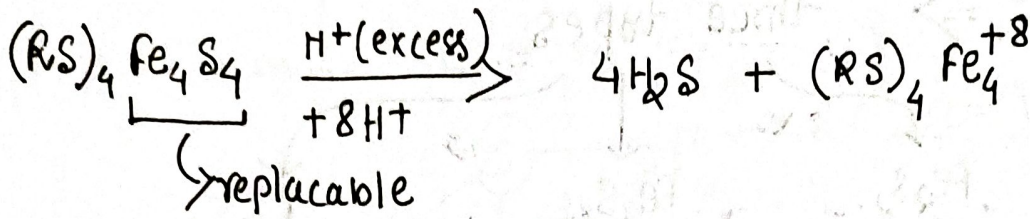 (RS)₄ Fe₄ S₄ H+(excess) +8H+ 4H₂S + (RS)₄ Fe₄⁺⁸
replacable